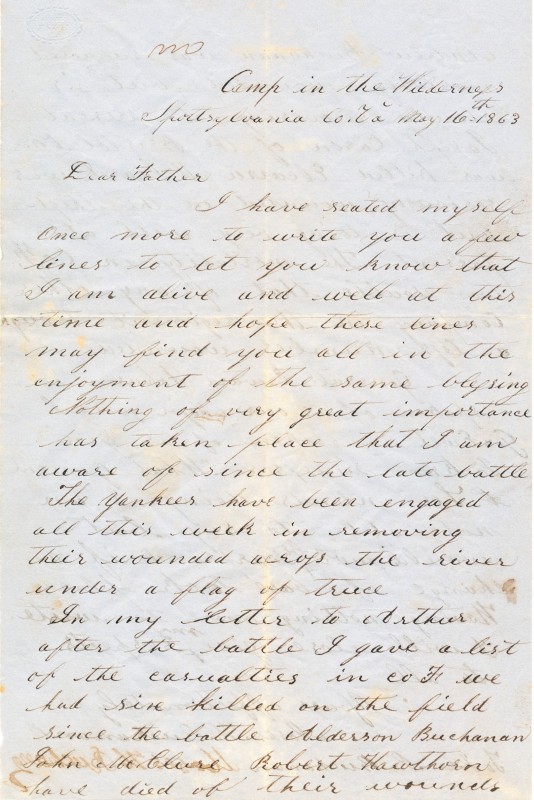 Camp in the Wilderness
Spottsylvania Co. Va May 16th 1863
Dear Father
I have seated myself
once more to write you a few
lines to let you know that
I am alive and well at this
time and hope these lines
may find you all in the
enjoyment of the same blessing
Nothing of very great importance
has taken place that I am
aware of since the late battle
The Yankees have been engaged
all this week in removing
their wounded across the river
under a flag of truce
In my letter to Arthur
after the battle I gave a list
of the casualties in co F we
had sixe killed on the field
since the battle Alderson Buchanan
John McClure Robert Hawthorn
have died of their wounds